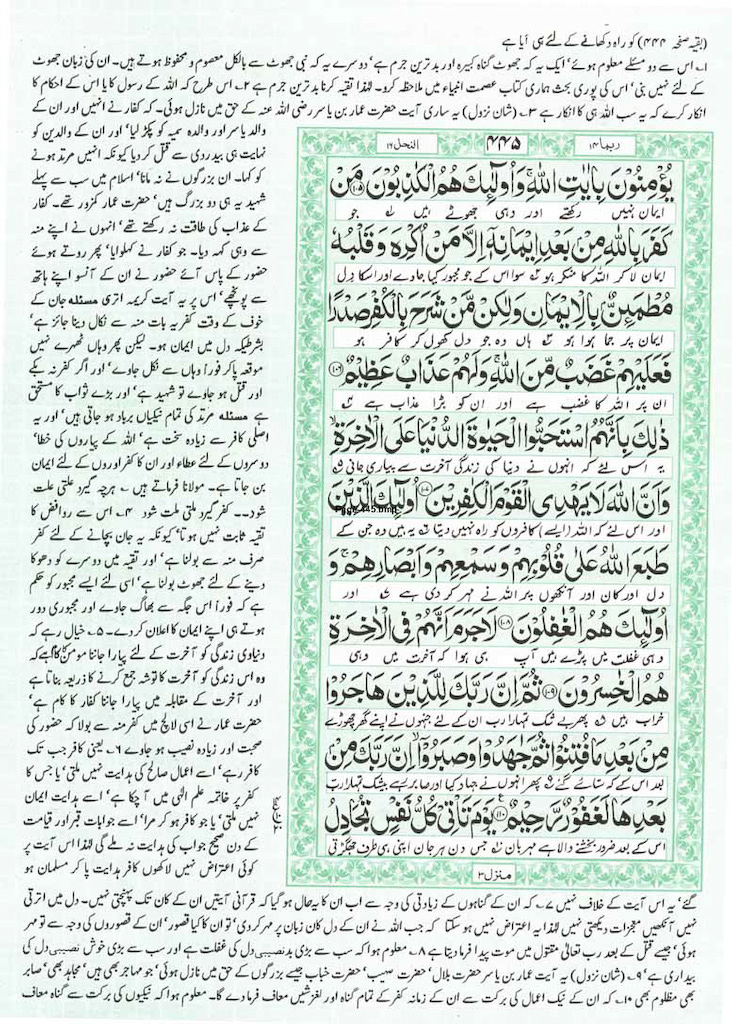 (بقیہ صفحہ ۴۴۴) کو راہ دکھانے کے لئے ہی آیا ہے
۱۔ اس سے دو مسئلے معلوم ہوئے' ایک یہ کہ جھوٹ گناہ کبیرہ اور بدترین جرم ہے' دوسرے یہ کہ نبی جھوٹ سے بالکل معصوم و محفوظ ہوتے ہیں۔ ان کی زبان جھوٹ
کے لئے نہیں بنی' اس کی پوری بحث ہماری کتاب عصمت انبیاء میں ملاحظہ کرو۔ لہٰذا تقیہ کرنا بدترین جرم ہے ۲۔ اس طرح کہ اللہ کے رسول کا یا اس کے احکام کا
انکار کرے کہ یہ سب اللہ ہی کا انکار ہے ۳۔ (شان نزول) یہ ساری آیت حضرت عمار بن یاسر رضی اللہ عنہ کے حق میں نازل ہوئی۔ کہ کفار نے انہیں اور ان کے
والد یاسر اور والدہ سمیہ کو پکڑ لیا' اور ان کے والدین کو
نہایت ہی بیدردی سے قتل کر دیا کیونکہ انہیں مرتد ہونے
کو کہا۔ ان بزرگوں نے نہ مانا' اسلام میں سب سے پہلے
شہید یہ ہی دو بزرگ ہیں' حضرت عمار کمزور تھے۔ کفار
کے عذاب کی طاقت نہ رکھتے تھے' انہوں نے اپنے منہ
سے وہی کہہ دیا۔ جو کفار نے کہلوایا' پھر روتے ہوئے
حضور کے پاس آئے حضور نے ان کے آنسو اپنے ہاتھ
سے پونچھے' اس پر یہ آیت کریمہ اتری مسئلہ جان کے
خوف کے وقت کفریہ بات منہ سے نکال دینا جائز ہے'
بشرطیکہ دل میں ایمان ہو۔ لیکن پھر وہاں ٹھہرے نہیں
موقعہ پا کر فوراً وہاں سے نکل جاوے' اور اگر کفر نہ بکے
اور قتل ہو جاوے تو شہید ہے' اور بڑے ثواب کا مستحق
ہے مسئلہ مرتد کی تمام نیکیاں برباد ہو جاتی ہیں' اور یہ
اصلی کافر سے زیادہ سخت ہے' اللہ کے پیاروں کی خطا'
دوسروں کے لئے عطاء اور ان کا کفر اوروں کے لئے ایمان
بن جاتا ہے۔ مولانا فرماتے ہیں ؂ ہرچہ گیرد علتی علت
شود۔۔ کفر گیرد ملتی ملت شود ۴۔ اس سے روافض کا
تقیہ ثابت نہیں ہوتا' کیونکہ یہ جان بچانے کے لئے کفر
صرف منہ سے بولنا ہے' اور تقیہ میں دوسرے کو دھوکا
دینے کے لئے جھوٹ بولنا ہے' اسی لئے ایسے مجبور کو حکم
ہے کہ فوراً اس جگہ سے بھاگ جاوے اور مجبوری دور
ہوتے ہی اپنے ایمان کا اعلان کر دے۔ ۵۔ خیال رہے کہ
دنیاوی زندگی کو آخرت کے لئے پیارا جاننا مومن کا کام ہے کہ
وہ اس زندگی کو آخرت کا توشہ جمع کرنے کا ذریعہ بناتا ہے
اور آخرت کے مقابلہ میں پیارا جاننا کفار کا کام ہے'
حضرت عمار نے اسی لالچ میں کفر منہ سے بولا کہ حضور کی
صحبت اور زیادہ نصیب ہو جاوے ۶۔ یعنی کافر جب تک
کافر رہے' اسے اعمال صالح کی ہدایت نہیں ملتی' یا جس کا
کفر پر خاتمہ علم الٰہی میں آ چکا ہے' اسے ہدایت ایمان
نہیں ملتی' یا جو کافر ہو کر مرا' اسے جوابات قبر اور قیامت
کے دن صحیح جواب کی ہدایت نہ ملے گی لہٰذا اس آیت پر
کوئی اعتراض نہیں لاکھوں کافر ہدایت پا کر مسلمان ہو
ربما ۱۴
۴۴۵
النحل ۱۶
يُؤْمِنُونَ بِاٰيٰتِ اللّٰهِ وَاُولٰٓئِكَ هُمُ الْكٰذِبُوْنَ ۝۱۰۵ مَنْ
ایمان نہیں رکھتے اور وہی جھوٹے ہیں جو
كَفَرَ بِاللّٰهِ مِنْۢ بَعْدِ اِيْمَانِهٖٓ اِلَّا مَنْ اُكْرِهَ وَقَلْبُهٗ
ایمان لا کر اللہ کا منکر ہو سوا اس کے جو مجبور کیا جاوے اور اسکا دل
مُطْمَئِنٌّۢ بِالْاِيْمَانِ وَلٰكِنْ مَّنْ شَرَحَ بِالْكُفْرِ صَدْرًا
ایمان پر جما ہوا ہو ہاں وہ جو دل کھول کر کافر ہو
فَعَلَيْهِمْ غَضَبٌ مِّنَ اللّٰهِ وَلَهُمْ عَذَابٌ عَظِيْمٌ ۝۱۰۶
ان پر اللہ کا غضب ہے اور ان کو بڑا عذاب ہے
ذٰلِكَ بِاَنَّهُمُ اسْتَحَبُّوا الْحَيٰوةَ الدُّنْيَا عَلَى الْاٰخِرَةِ
یہ اس لئے کہ انہوں نے دنیا کی زندگی آخرت سے پیاری جانی
وَاَنَّ اللّٰهَ لَا يَهْدِى الْقَوْمَ الْكٰفِرِيْنَ ۝۱۰۷ اُولٰٓئِكَ الَّذِيْنَ
Page-445.bmp
اور اس لئے کہ اللہ (ایسے) کافروں کو راہ نہیں دیتا یہ ہیں وہ جن کے
طَبَعَ اللّٰهُ عَلٰى قُلُوْبِهِمْ وَسَمْعِهِمْ وَاَبْصَارِهِمْ وَ
دل اور کان اور آنکھوں پر اللہ نے مہر کر دی ہے اور
اُولٰٓئِكَ هُمُ الْغٰفِلُوْنَ ۝۱۰۸ لَا جَرَمَ اَنَّهُمْ فِى الْاٰخِرَةِ
وہی غفلت میں پڑے ہیں آپ ہی ہوا کہ آخرت میں وہی
هُمُ الْخٰسِرُوْنَ ۝۱۰۹ ثُمَّ اِنَّ رَبَّكَ لِلَّذِيْنَ هَاجَرُوْا
خراب ہیں پھر بے شک تمہارا رب ان کے لئے جنہوں نے اپنے گھر چھوڑے
مِنْۢ بَعْدِ مَا فُتِنُوْا ثُمَّ جٰهَدُوْا وَصَبَرُوْٓا اِنَّ رَبَّكَ مِنْۢ
بعد اس کے کہ ستائے گئے پھر انہوں نے جہاد کیا اور صابر رہے بیشک تمہارا رب
بَعْدِهَا لَغَفُوْرٌ رَّحِيْمٌ ۝۱۱۰ يَوْمَ تَاْتِىْ كُلُّ نَفْسٍ تُجَادِلُ
اس کے بعد ضرور بخشنے والا ہے مہربان جس دن ہر جان اپنی ہی طرف جھگڑتی
منزل ۳
گئے' یہ اس آیت کے خلاف نہیں ۷۔ کہ ان کے گناہوں کے زیادتی کی وجہ سے اب ان کا یہ حال ہو گیا کہ قرآنی آیتیں ان کے کان تک پہنچتی نہیں۔ دل میں اترتی
نہیں آنکھیں معجزات دیکھتی نہیں لہٰذا یہ اعتراض نہیں ہو سکتا کہ جب اللہ نے ان کے دل کان زبان پر مہر کر دی' تو ان کا کیا قصور' ان کے قصوروں کی وجہ سے تو مہر
ہوئی' جیسے قتل کے بعد رب تعالیٰ مقتول میں موت پیدا فرما دیتا ہے ۸۔ معلوم ہوا کہ سب سے بڑی بد نصیبی دل کی غفلت ہے اور سب سے بڑی خوش نصیبی دل کی
بیداری ہے' ۹۔ (شان نزول) یہ آیت عمار بن یاسر حضرت بلال' حضرت صہیب' حضرت خباب جیسے بزرگوں کے حق میں نازل ہوئی' جو مہاجر بھی ہیں' مجاہد بھی' صابر
بھی مظلوم بھی ۱۰۔ کہ ان کے نیک اعمال کی برکت سے ان کے زمانہ کفر کے تمام گناہ اور لغزشیں معاف فرما دے گا۔ معلوم ہوا کہ نیکیوں کی برکت سے گناہ معاف